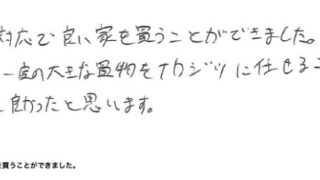 対応で良い家を買うことができました。
一度の大きな買物をナカジツに任せるこ
良かったと思います。
を買うことができました。